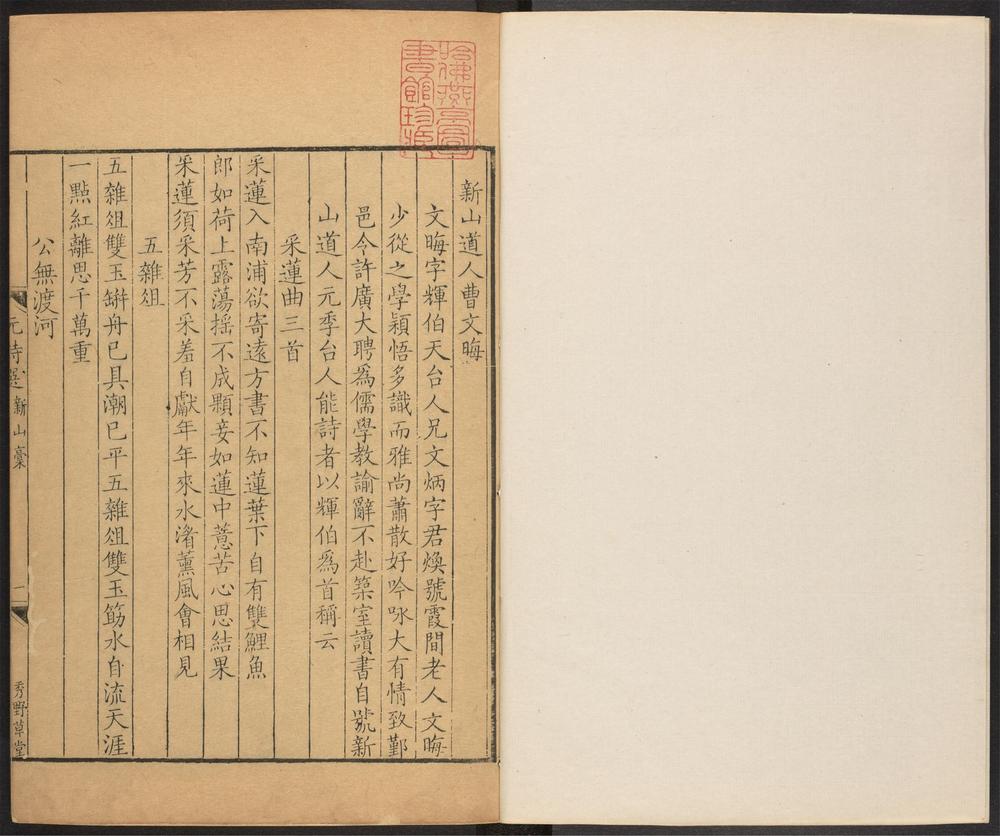 哈佛燕京圖
書館珍藏
新山道人曹文晦
文晦字輝伯天台人兄文炳字君煥號霞間老人文晦
少從之學穎悟多識而雅尚蕭散好吟咏大有情致鄞
邑令許廣大聘爲儒學教諭辭不赴築室讀書自號新
山道人元季台人能詩者以輝伯爲首稱云
采蓮曲三首
采蓮入南浦欲寄遠方書不知蓮葉下自有雙鯉魚
郎如荷上露蕩摇不成顆妾如蓮中薏苦心思結果
采蓮須采芳不采羞自獻年年來水渚薰風會相見
五雜俎
五雜俎雙玉缾舟已具潮已平五雜俎雙玉筯水自流天涯
一點紅離思千萬重
公無渡河
元詩選
新山稾
一
秀野草堂